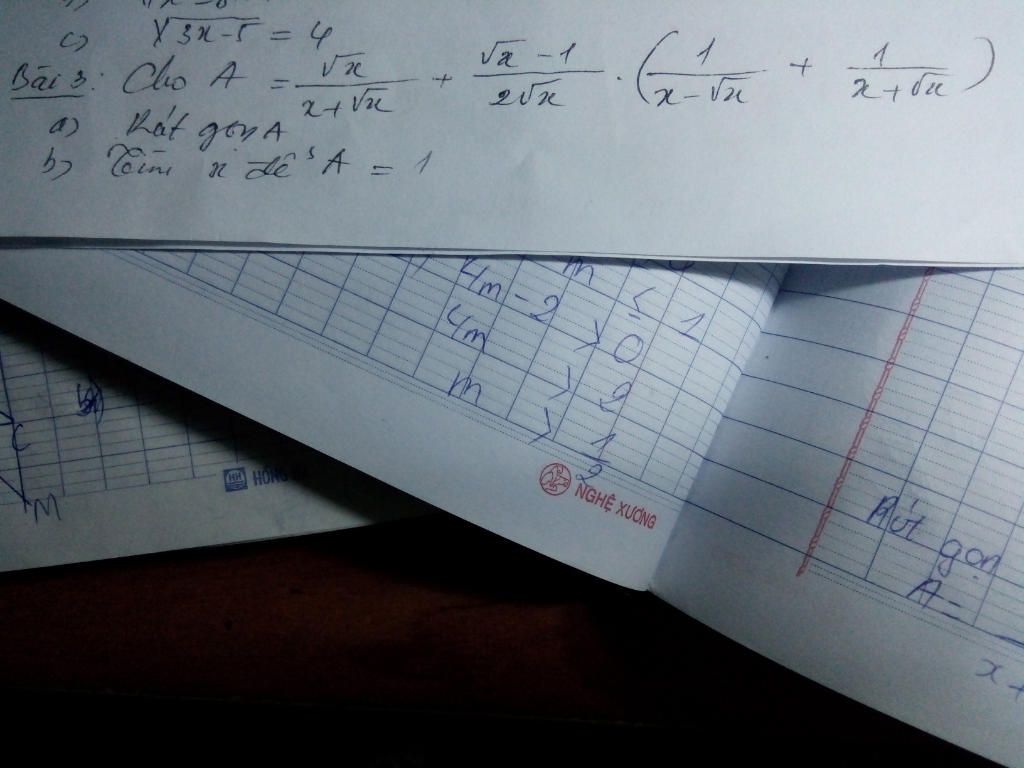 c) √3x-5 = 4
Bài 3: Cho A = √x / x+√x + √x -1 / 2√x . ( 1 / x-√x + 1 / x+√x )
a) Rút gọn A
b) Tìm x để A = 1
m ≤ 1
4m - 2 > 0
4m > 2
m > 1/2
b)
C
M
HH HỒNG
NGHỆ XƯƠNG
Rút gọn
A =
x +